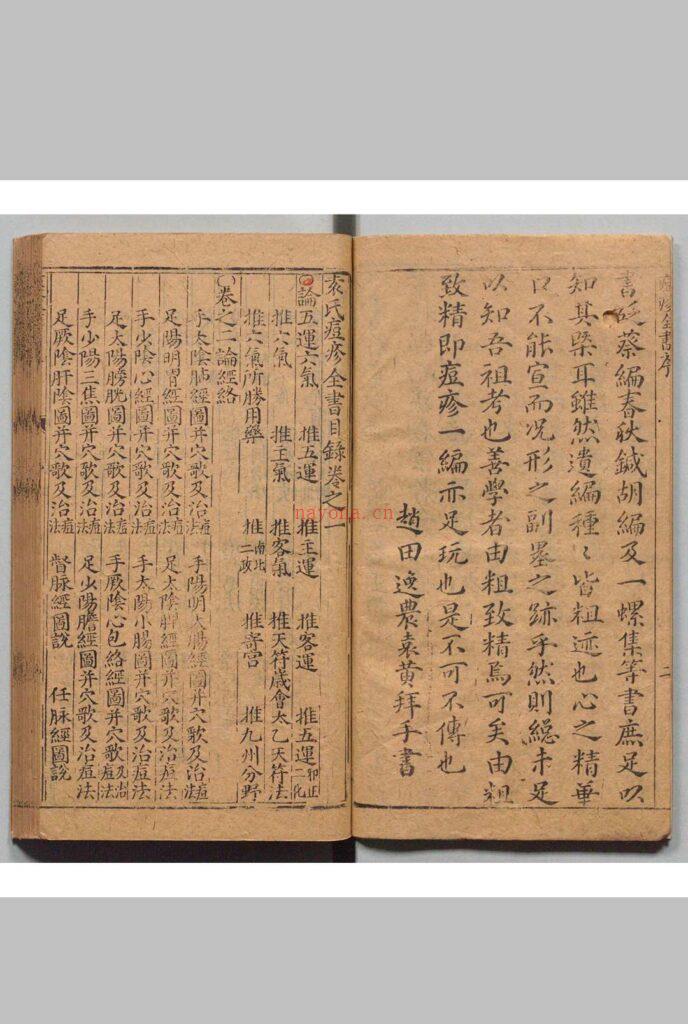 痘疹全書序
書砭蔡編春秋鍼胡編及一螺集等書庶足以
知其槩耳雖然遺編種〻皆粗迹也心之精華
口不能宣而况形之副墨之跡乎然則緫未足
以知吾祖考也善學者由粗致精焉可矣由粗
致精即痘疹一編亦足玩也是不可不傳也
趙田逸農袁黃拜手書
二
袁氏痘疹全書目錄卷之一
論五運六氣 推五運 推主運 推客運 推五運卯正二化
推六氣 推主氣 推客氣 推天符歲會太乙天符法
推六氣所勝用藥 推南北二政 推寄宮 推九州分野
卷之二論經絡
手太陰肺經圖并穴歌及治痘法 手陽明大腸經圖并穴歌及治痘法
足陽明胃經圖并穴歌及治痘法 足太陰脾經圖并穴歌及治痘法
手少陰心經圖并穴歌及治痘法 手太陽小腸圖并穴歌及治痘法
足太陽膀胱圖并穴歌及治痘法 手厥陰心包絡經圖并穴歌及治痘法
手少陽三焦圖并穴歌及治痘法 足少陽膽經圖并穴歌及治痘法
足厥陰肝陰圖并穴歌及治痘法 督脉經圖說 任脉經圖說
nayona.cn